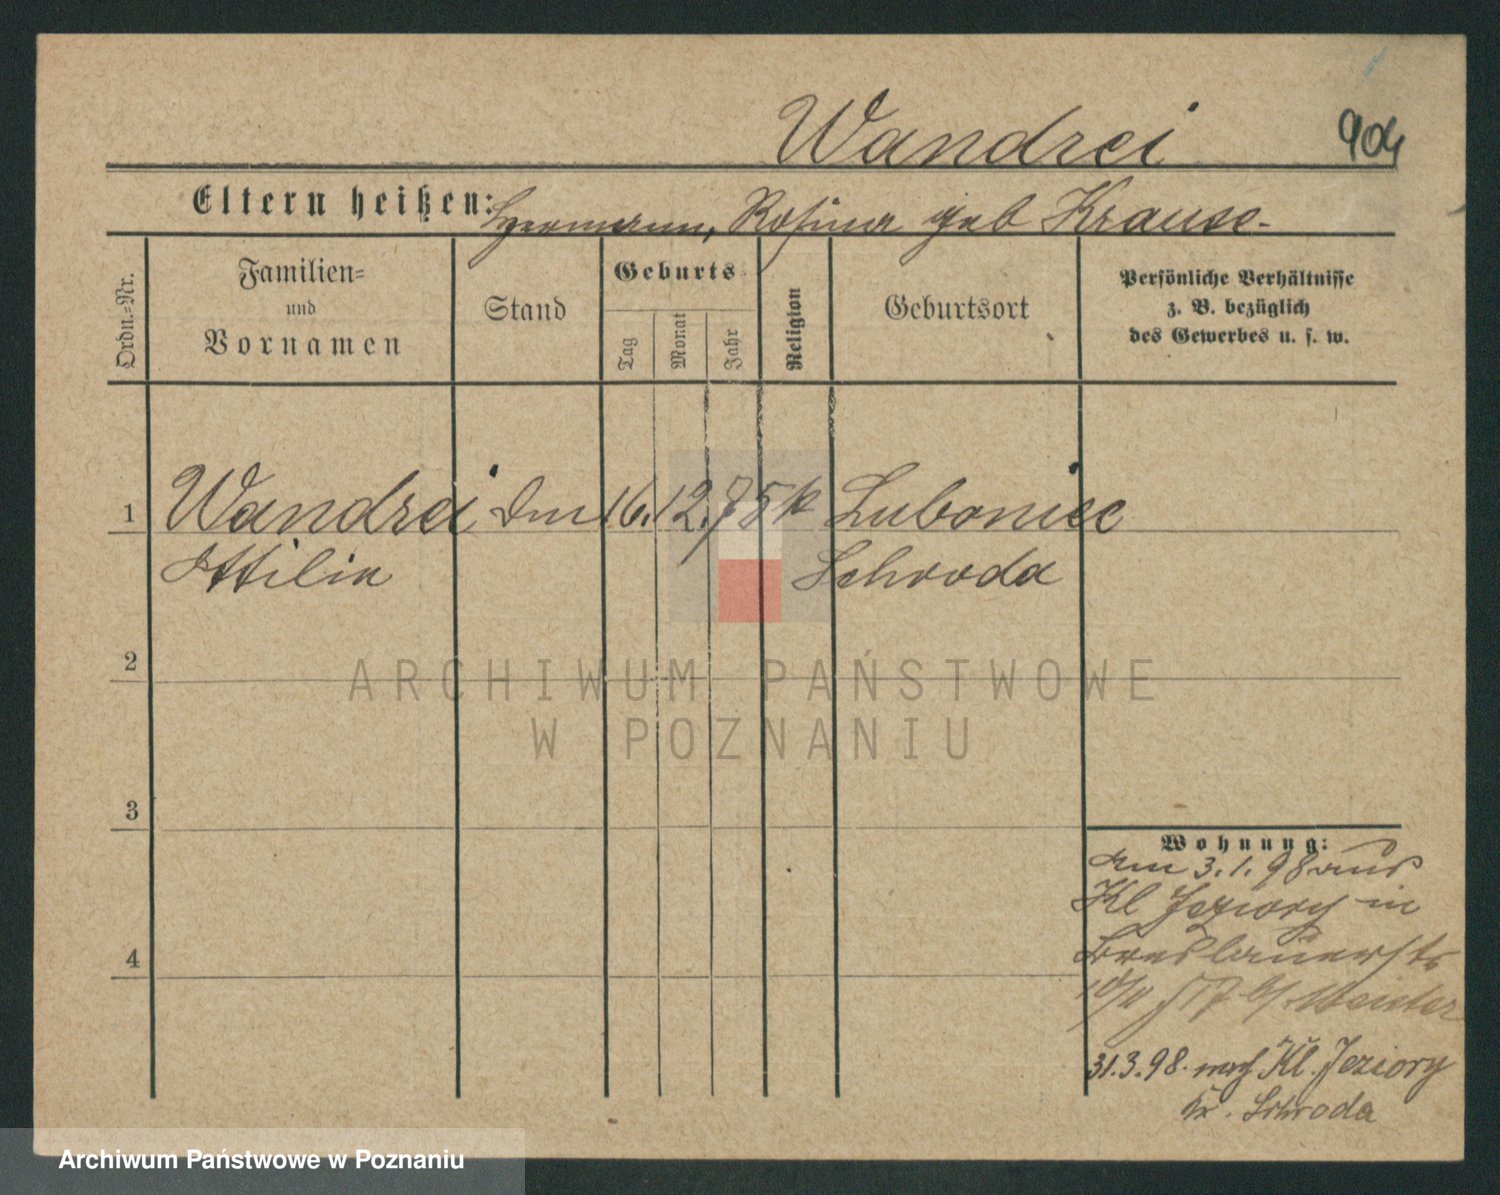 Wandrei
904
Eltern heißen: Hermann, Rosina geb Krause.
Ordn.=Nr.
Familien=
und
Vornamen
Stand
Geburts
Tag
Monat
Jahr
Religion
Geburtsort
Persönliche Verhältnisse
z. B. bezüglich
des Gewerbes u. s. w.
1 Wandrei 16. 12. 75 k Luboniec
Ottilie Schroda
2
ARCHIWUM PAŃSTWOWE
W POZNANIU
3
Wohnung:
am 3.1.98 aus
Kl Jeziory in
Breslauerstr
4
31.3.98. nach Kl. Jeziory
Kr. Schroda
Archiwum Państwowe w Poznaniu